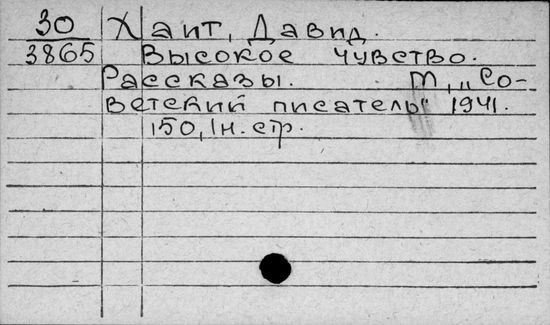 30 Хаит, Давид.
3865 Высокое чувство.
Рассказы. М, „Со-
ветский писатель" 1941.
150, 1н. стр.